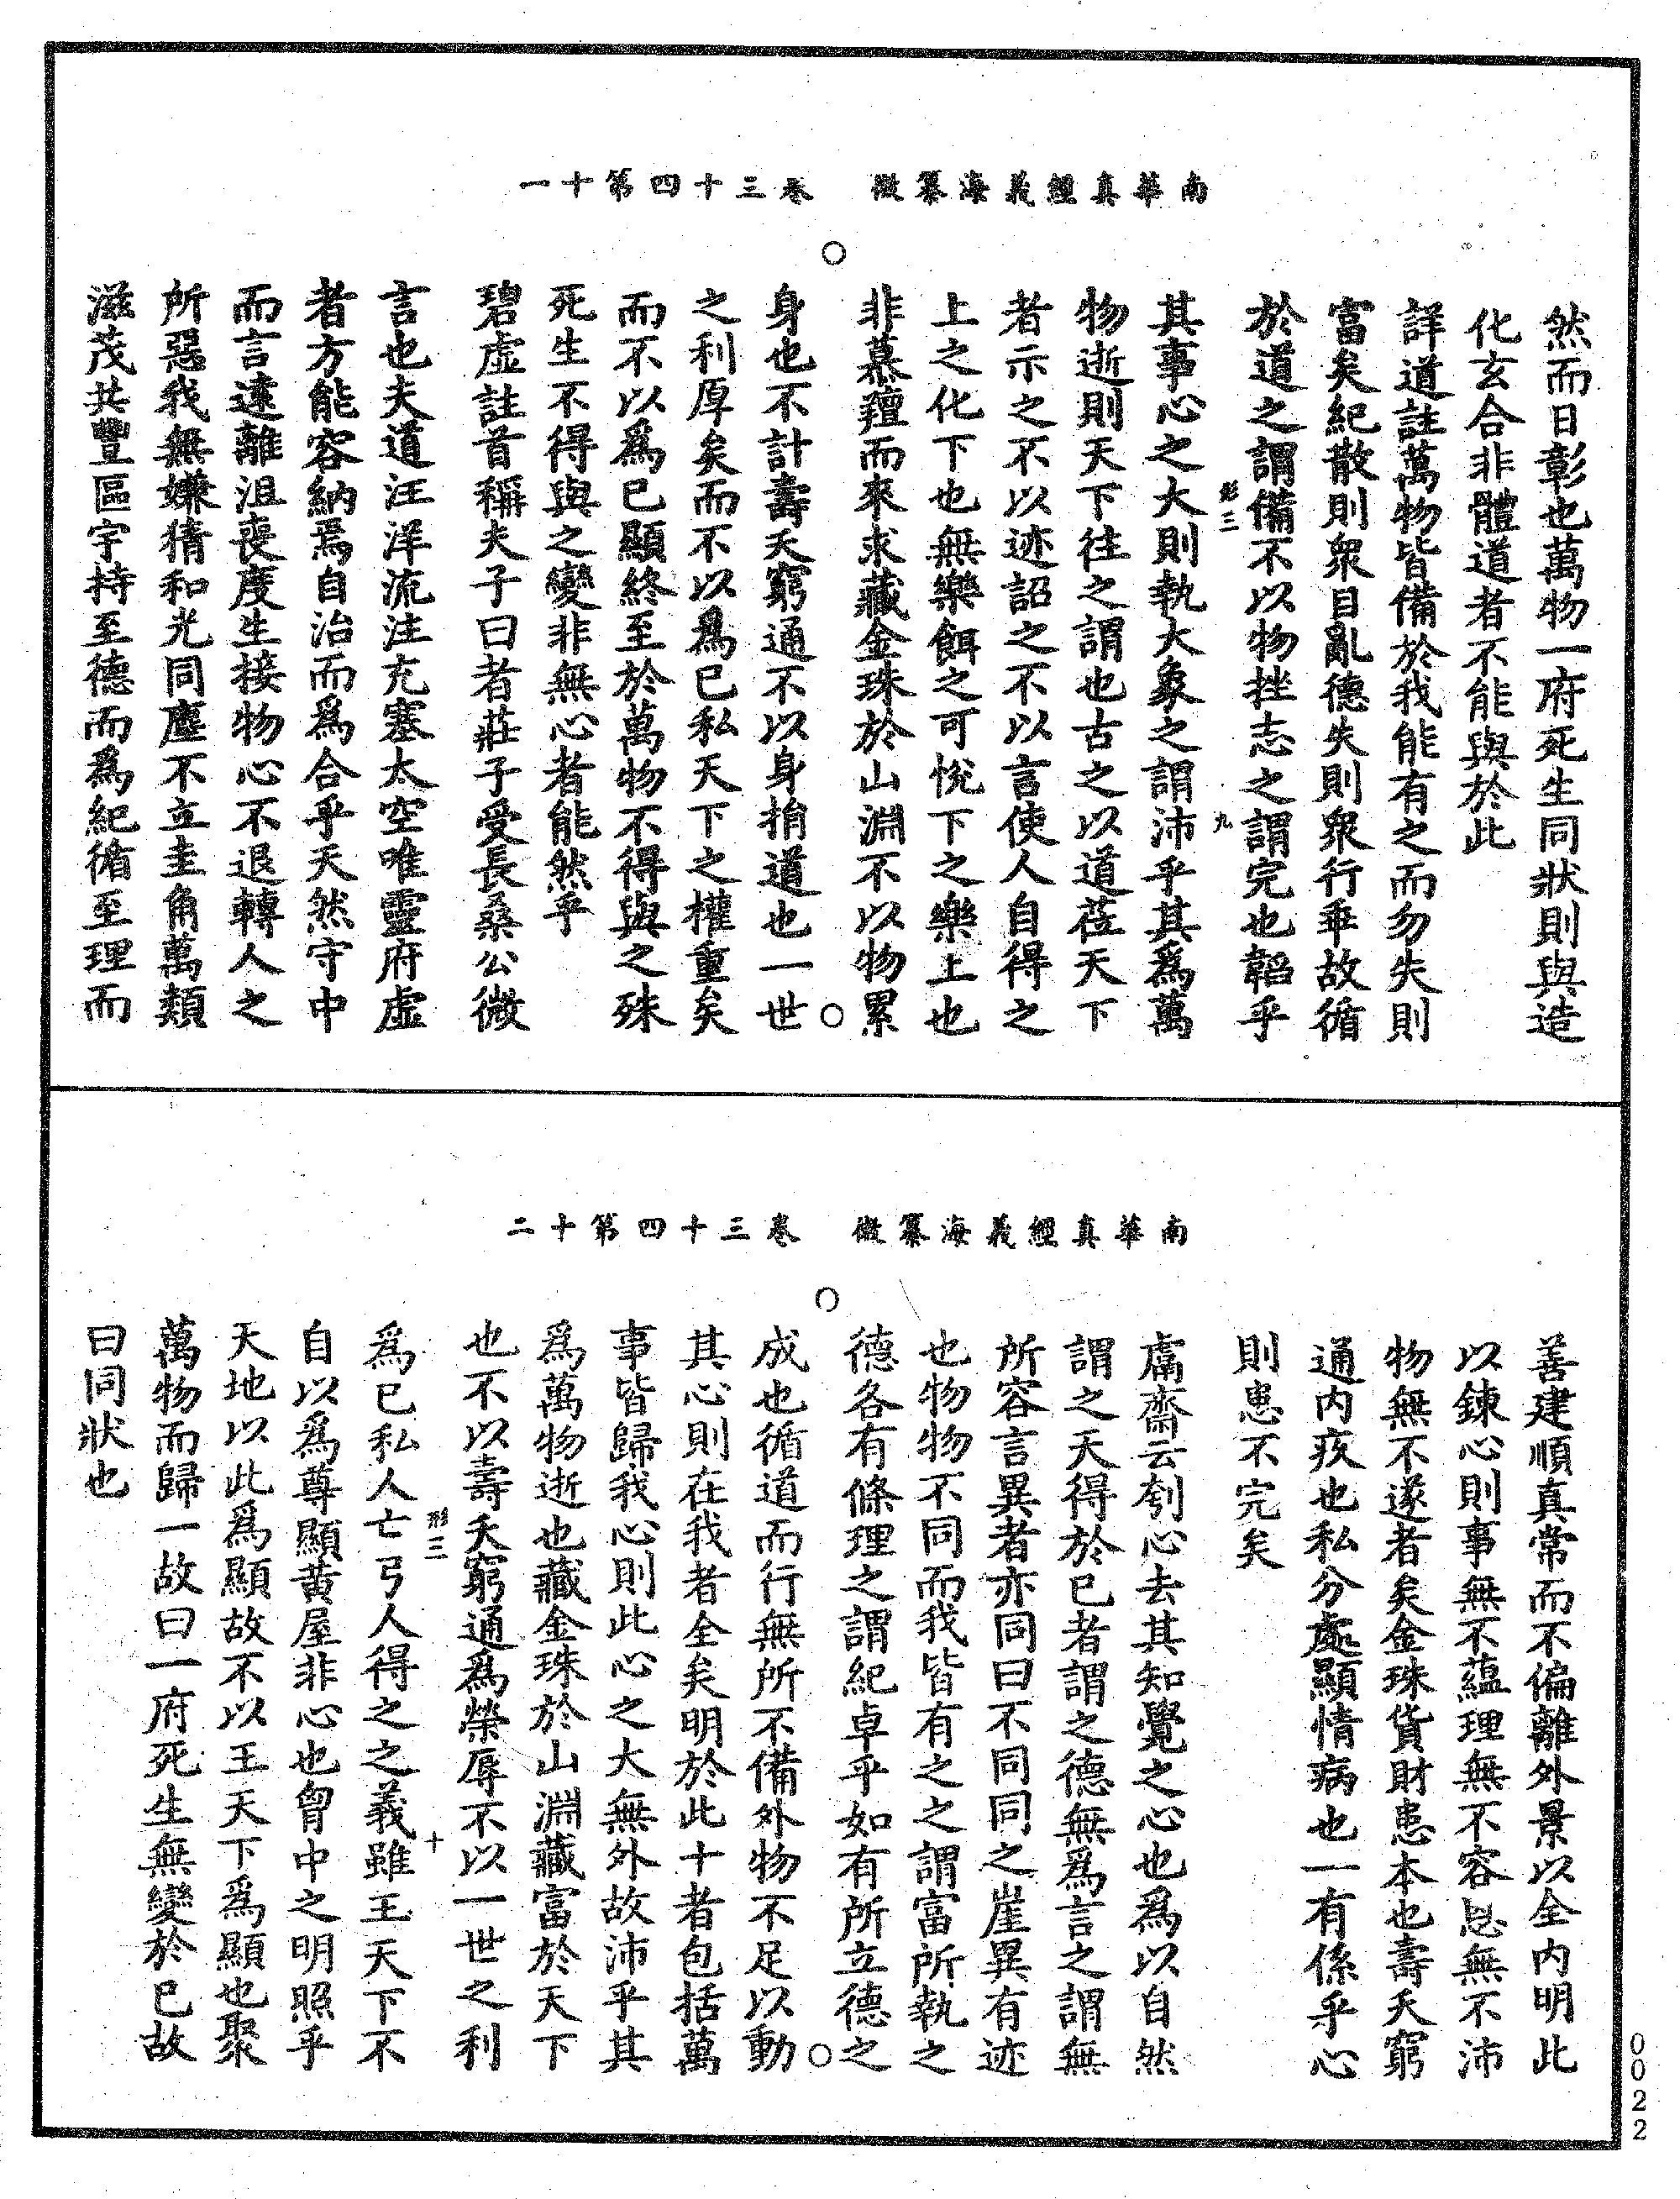 南華真經義海纂微　卷三十四第十一
然而日彰也萬物一府死生同狀則與造
化玄合非體道者不能與於此
詳道註萬物皆備於我能有之而勿失則
富矣紀散則衆目亂德失則衆行乖故循
於道之謂備不以物挫志之謂完也韜乎
形三　九
其事心之大則執大象之謂沛乎其爲萬
物逝則天下往之謂也古之以道莅天下
者示之不以迹詔之不以言使人自得之
上之化下也無樂餌之可悅下之樂上也
非慕羶而來求藏金珠於山淵不以物累
身也不計壽夭窮通不以身捐道也一世
之利厚矣而不以爲已私天下之權重矣
而不以爲已顯終至於萬物不得與之殊
死生不得與之變非無心者能然乎
碧虛註首稱夫子曰者莊子受長桑公微
言也夫道汪洋流注充塞太空唯靈府虛
者方能容納焉自治而爲合乎天然守中
而言遠離沮喪度生接物心不退轉人之
所惡我無嫌猜和光同塵不立圭角萬類
滋茂共豐區宇持至德而爲紀循至理而
南華真經義海纂微　卷三十四第十二
善建順真常而不偏離外景以全内明此
以鍊心則事無不蘊理無不容恩無不沛
物無不遂者矣金珠貨財患本也壽夭窮
通内疚也私分處顯情病也一有係乎心
則患不完矣
鬳齋云刳心去其知覺之心也爲以自然
謂之天得於已者謂之德無爲言之謂無
所容言異者亦同曰不同同之崖異有迹
也物物不同而我皆有之之謂富所執之
德各有條理之謂紀卓乎如有所立德之
成也循道而行無所不備外物不足以動
其心則在我者全矣明於此十者包括萬
事皆歸我心則此心之大無外故沛乎其
爲萬物逝也藏金珠於山淵藏富於天下
也不以壽夭窮通爲榮辱不以一世之利
形三　十
爲已私人亡弓人得之之義雖王天下不
自以爲尊顯黃屋非心也胷中之明照乎
天地以此爲顯故不以王天下爲顯也聚
萬物而歸一故曰一府死生無變於已故
曰同狀也
0022